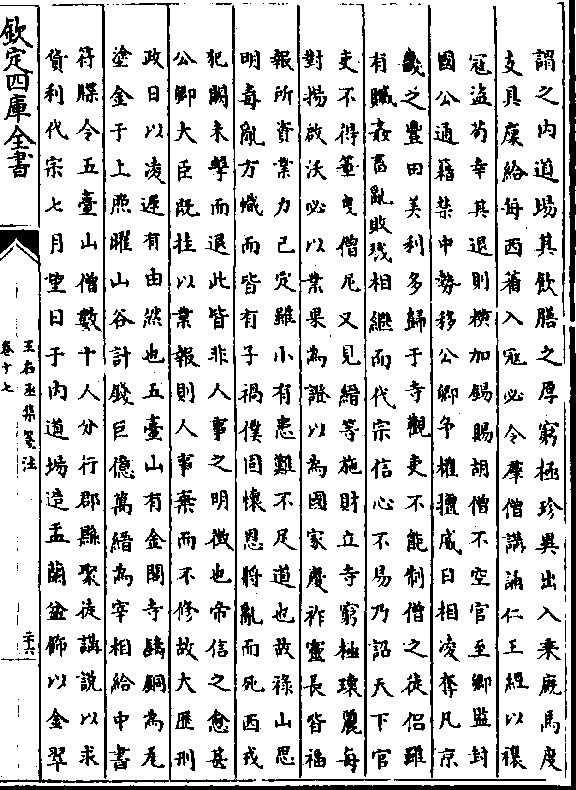 謂之内道場其飲膳之厚窮極珍異出入乗廐馬度
支具廩給每西蕃入寇必令羣僧講誦仁王經以禳
冦盗茍幸其退則横加錫賜胡僧不空官至卿監封
國公通籍禁中勢移公卿争權擅威日相凌奪凡京
畿之豐田美利多歸于寺觀吏不能制僧之徒侣雖
有贓姦畜亂敗戮相繼而代宗信心不易乃詔天下官
吏不得箠曳僧尼又見縉等施財立寺窮極瓌麗每
對揚啟沃必以業果為證以為國家慶祚靈長皆福
報所資業力已定雖小有患難不足道也故禄山思
明毒亂方熾而皆有子禍僕固懷恩將亂而死西戎
犯闕未擊而退此皆非人事之明徴也帝信之愈甚
公卿大臣既挂以業報則人事棄而不修故大歴刑
政日以凌遲有由然也五臺山有金閣寺鑄銅為瓦
塗金于上照曜山谷計錢巨億萬縉為宰相給中書
符牒令五臺山僧數十人分行郡縣聚徒講説以求
貨利代宗七月望日于内道場造盂蘭盆飾以金翠
欽定四庫全書
王右丞集箋注
卷十七
二十六